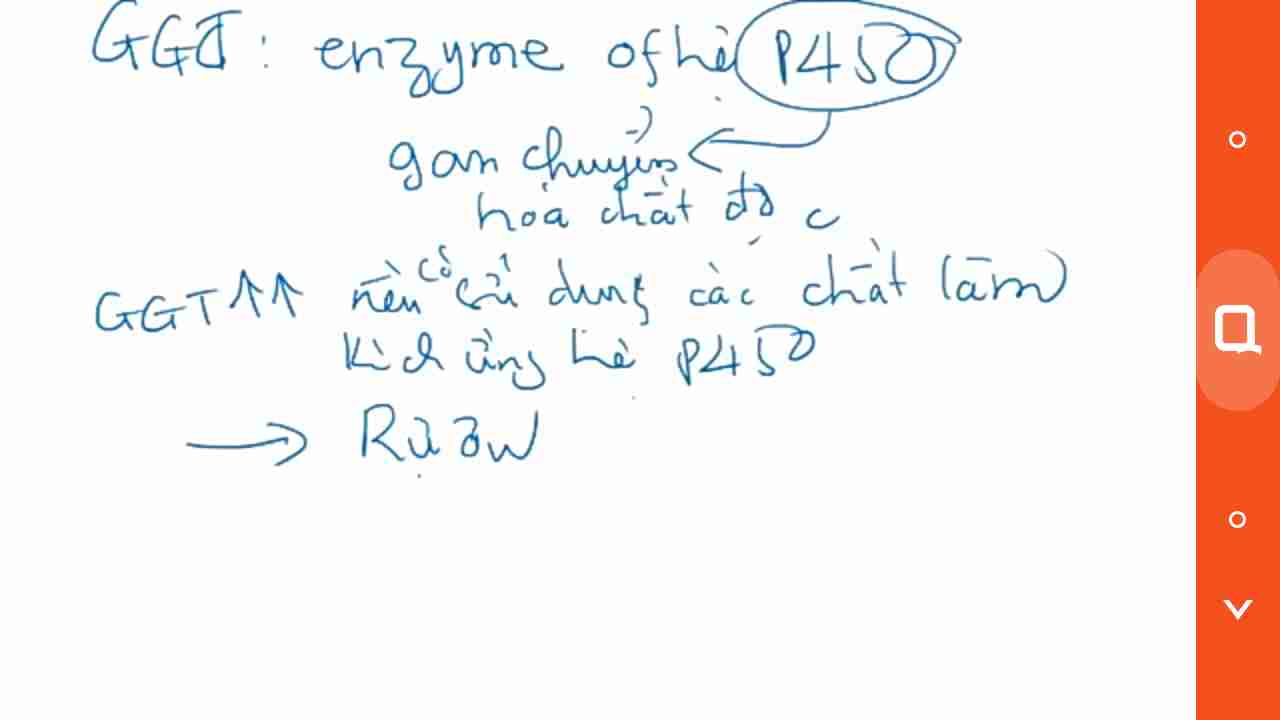 GGT: enzyme of hệ P450
gan chuyển
hóa chất độc
GGT↑↑ nếu có sử dụng các chất làm
kích ứng hệ P450
→ Rượu